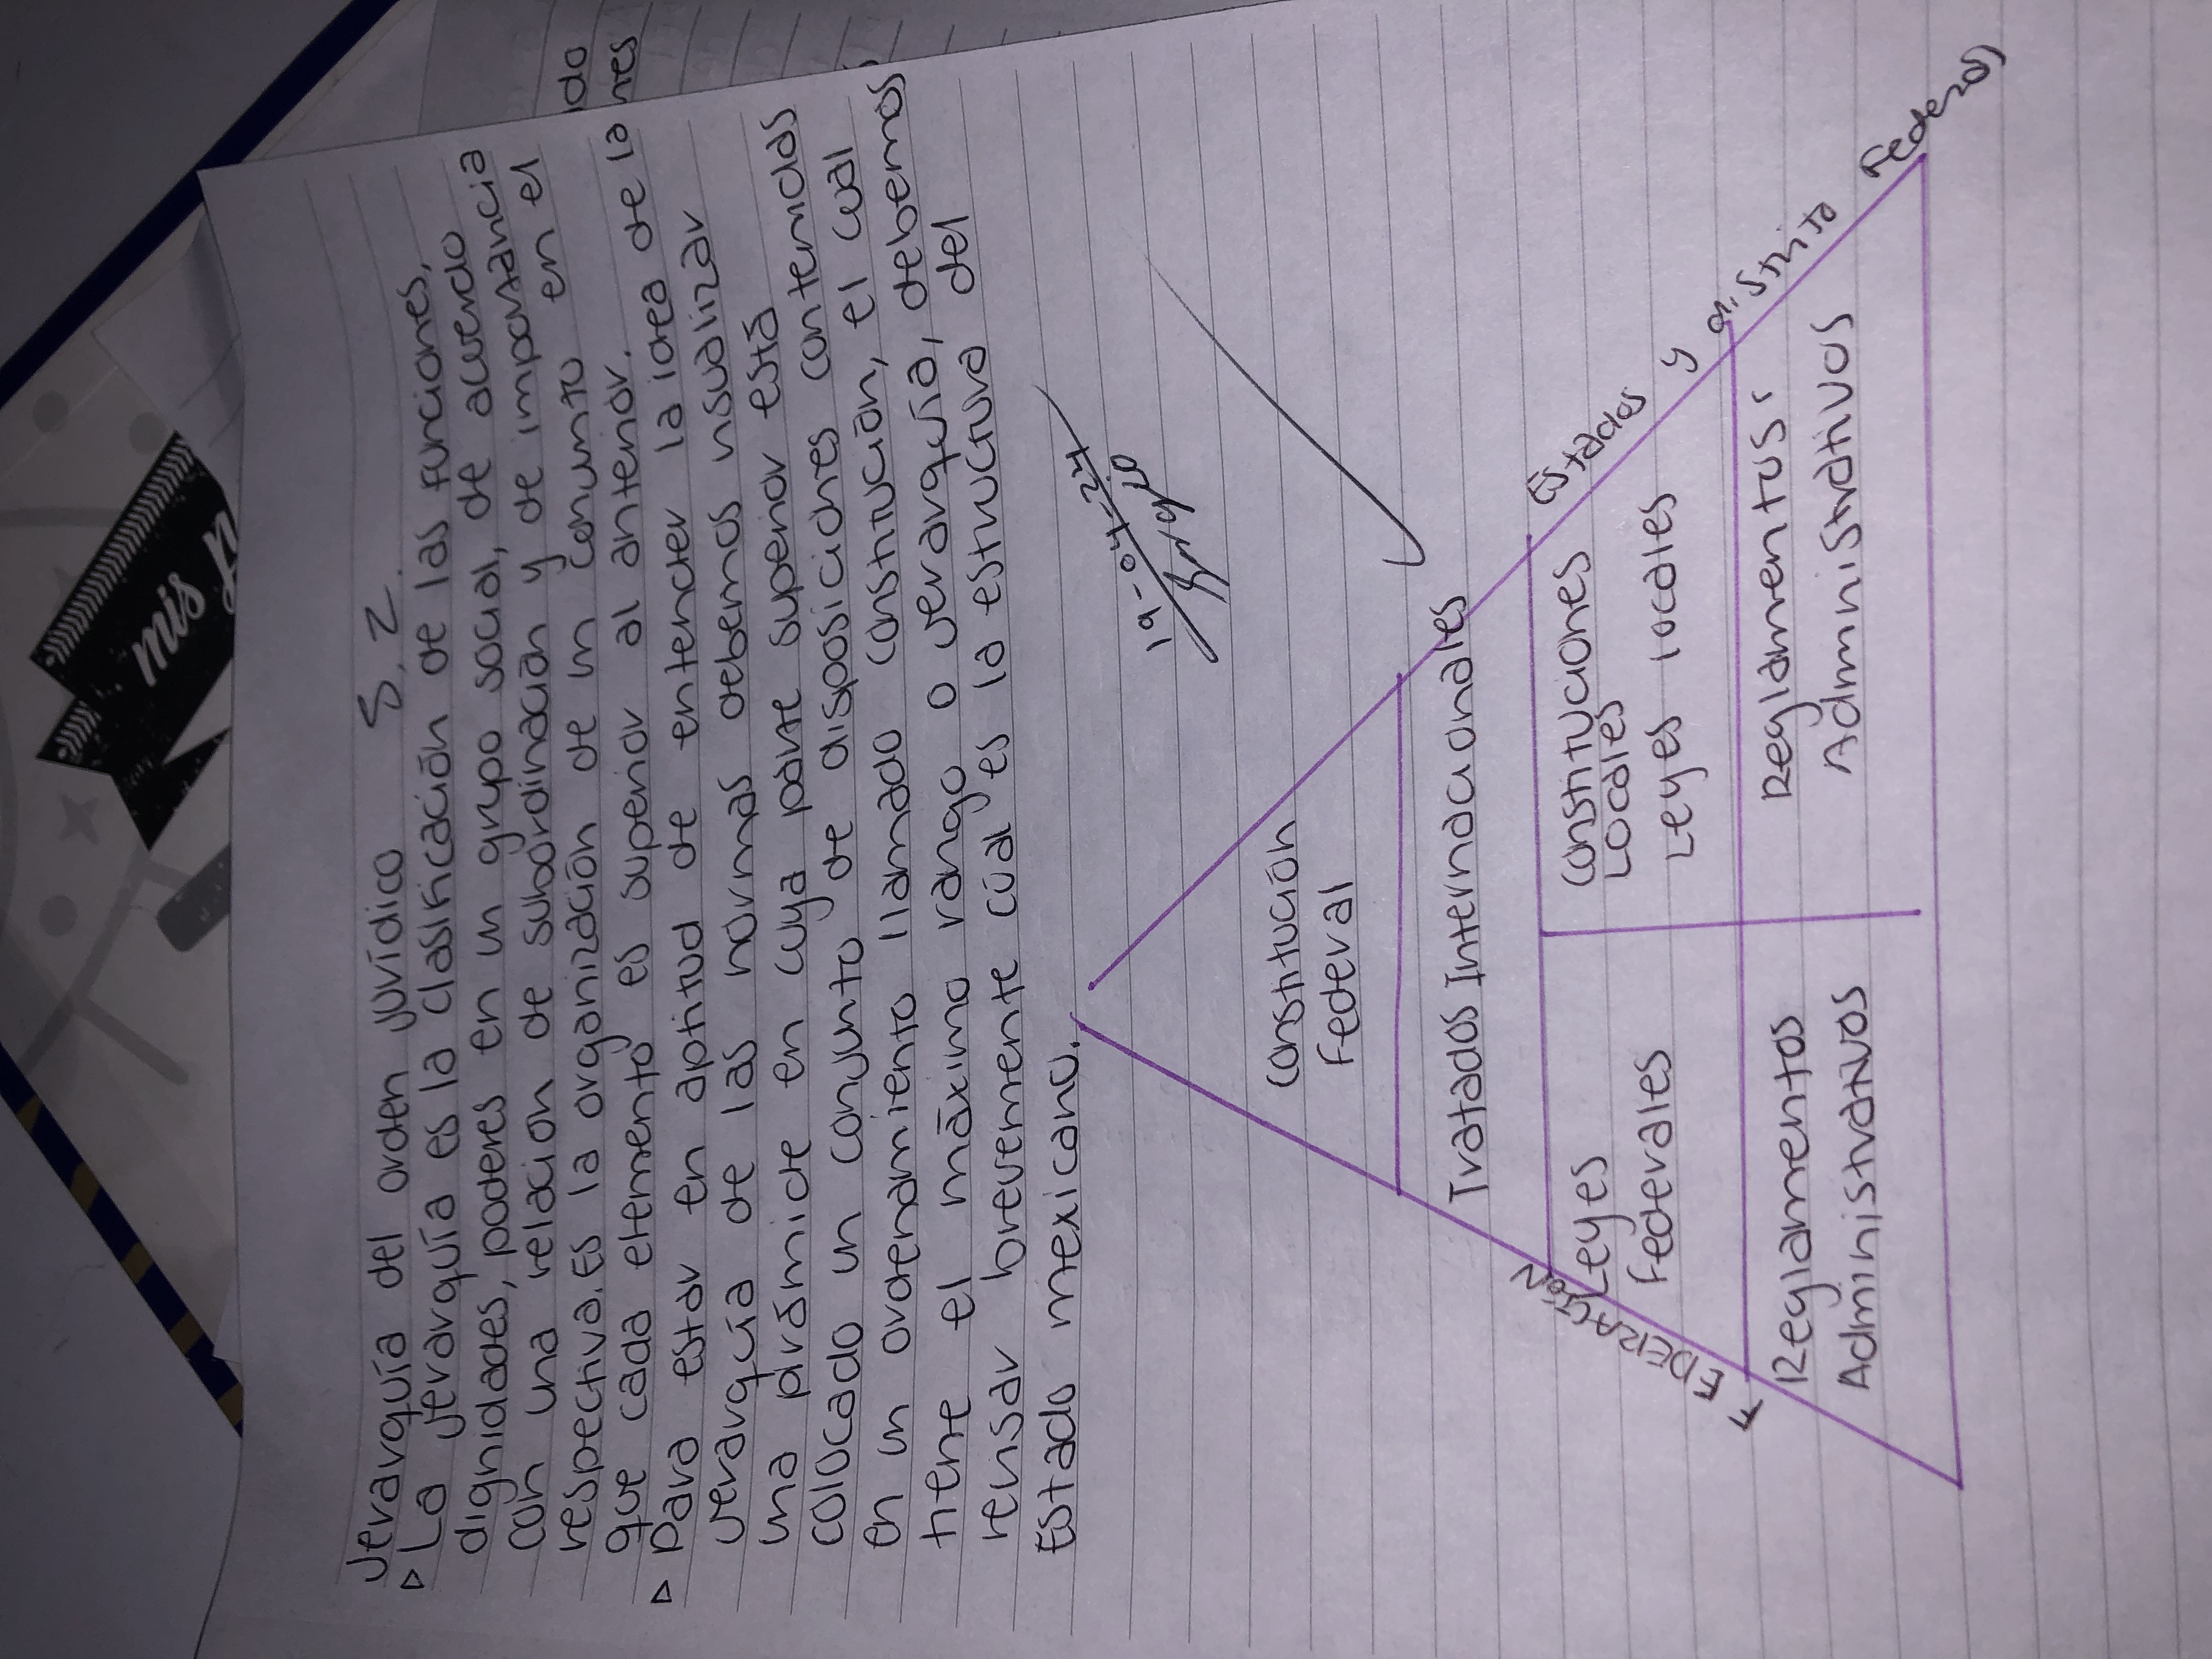 mis
do
nes
Jerarquía del orden jurídico 8.2.
▷ La jerarquía es la clasificación de las funciones,
dignidades, poderes en un grupo social, de acuerdo
con una relación de subordinación y de importancia
respectiva. Es la organización de un conjunto en el
que cada elemento es superior al anterior.
▷ Para estar en aptitud de entender la idea de la
jerarquía de las normas debemos visualizar
una pirámide en cuya parte superior está
colocado un conjunto de disposiciones contenidas
en un ordenamiento llamado constitución, el cual
tiene el máximo rango o jerarquía, debemos
pensar brevemente cuál es la estructura del
Estado mexicano.
19-04-24
Constitución
Federal
Tratados Internacionales
FEDERACIÓN
Leyes
Federales
Constituciones
Locales
Leyes locales
Estados y distrito Federal
Reglamentos
Administrativos
Reglamentos
Administrativos